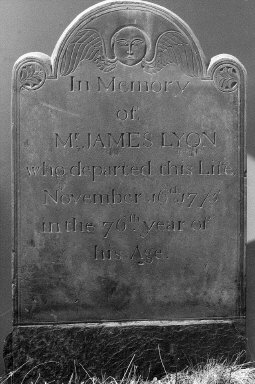 In Memory
of
Mr. JAMES LYON
who departed this Life,
November 16th
in the 76th year of
his Age.